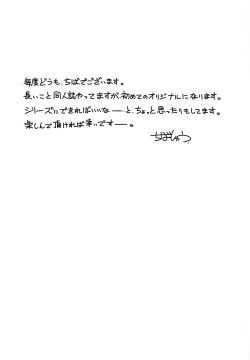 毎度どうも、ちばでございます。
長いこと同人誌やってますが、初めてのオリジナルになります。
シリーズにできればいいな──と、ちょっと思ったりもしてます。
楽しんで頂ければ幸いです──。